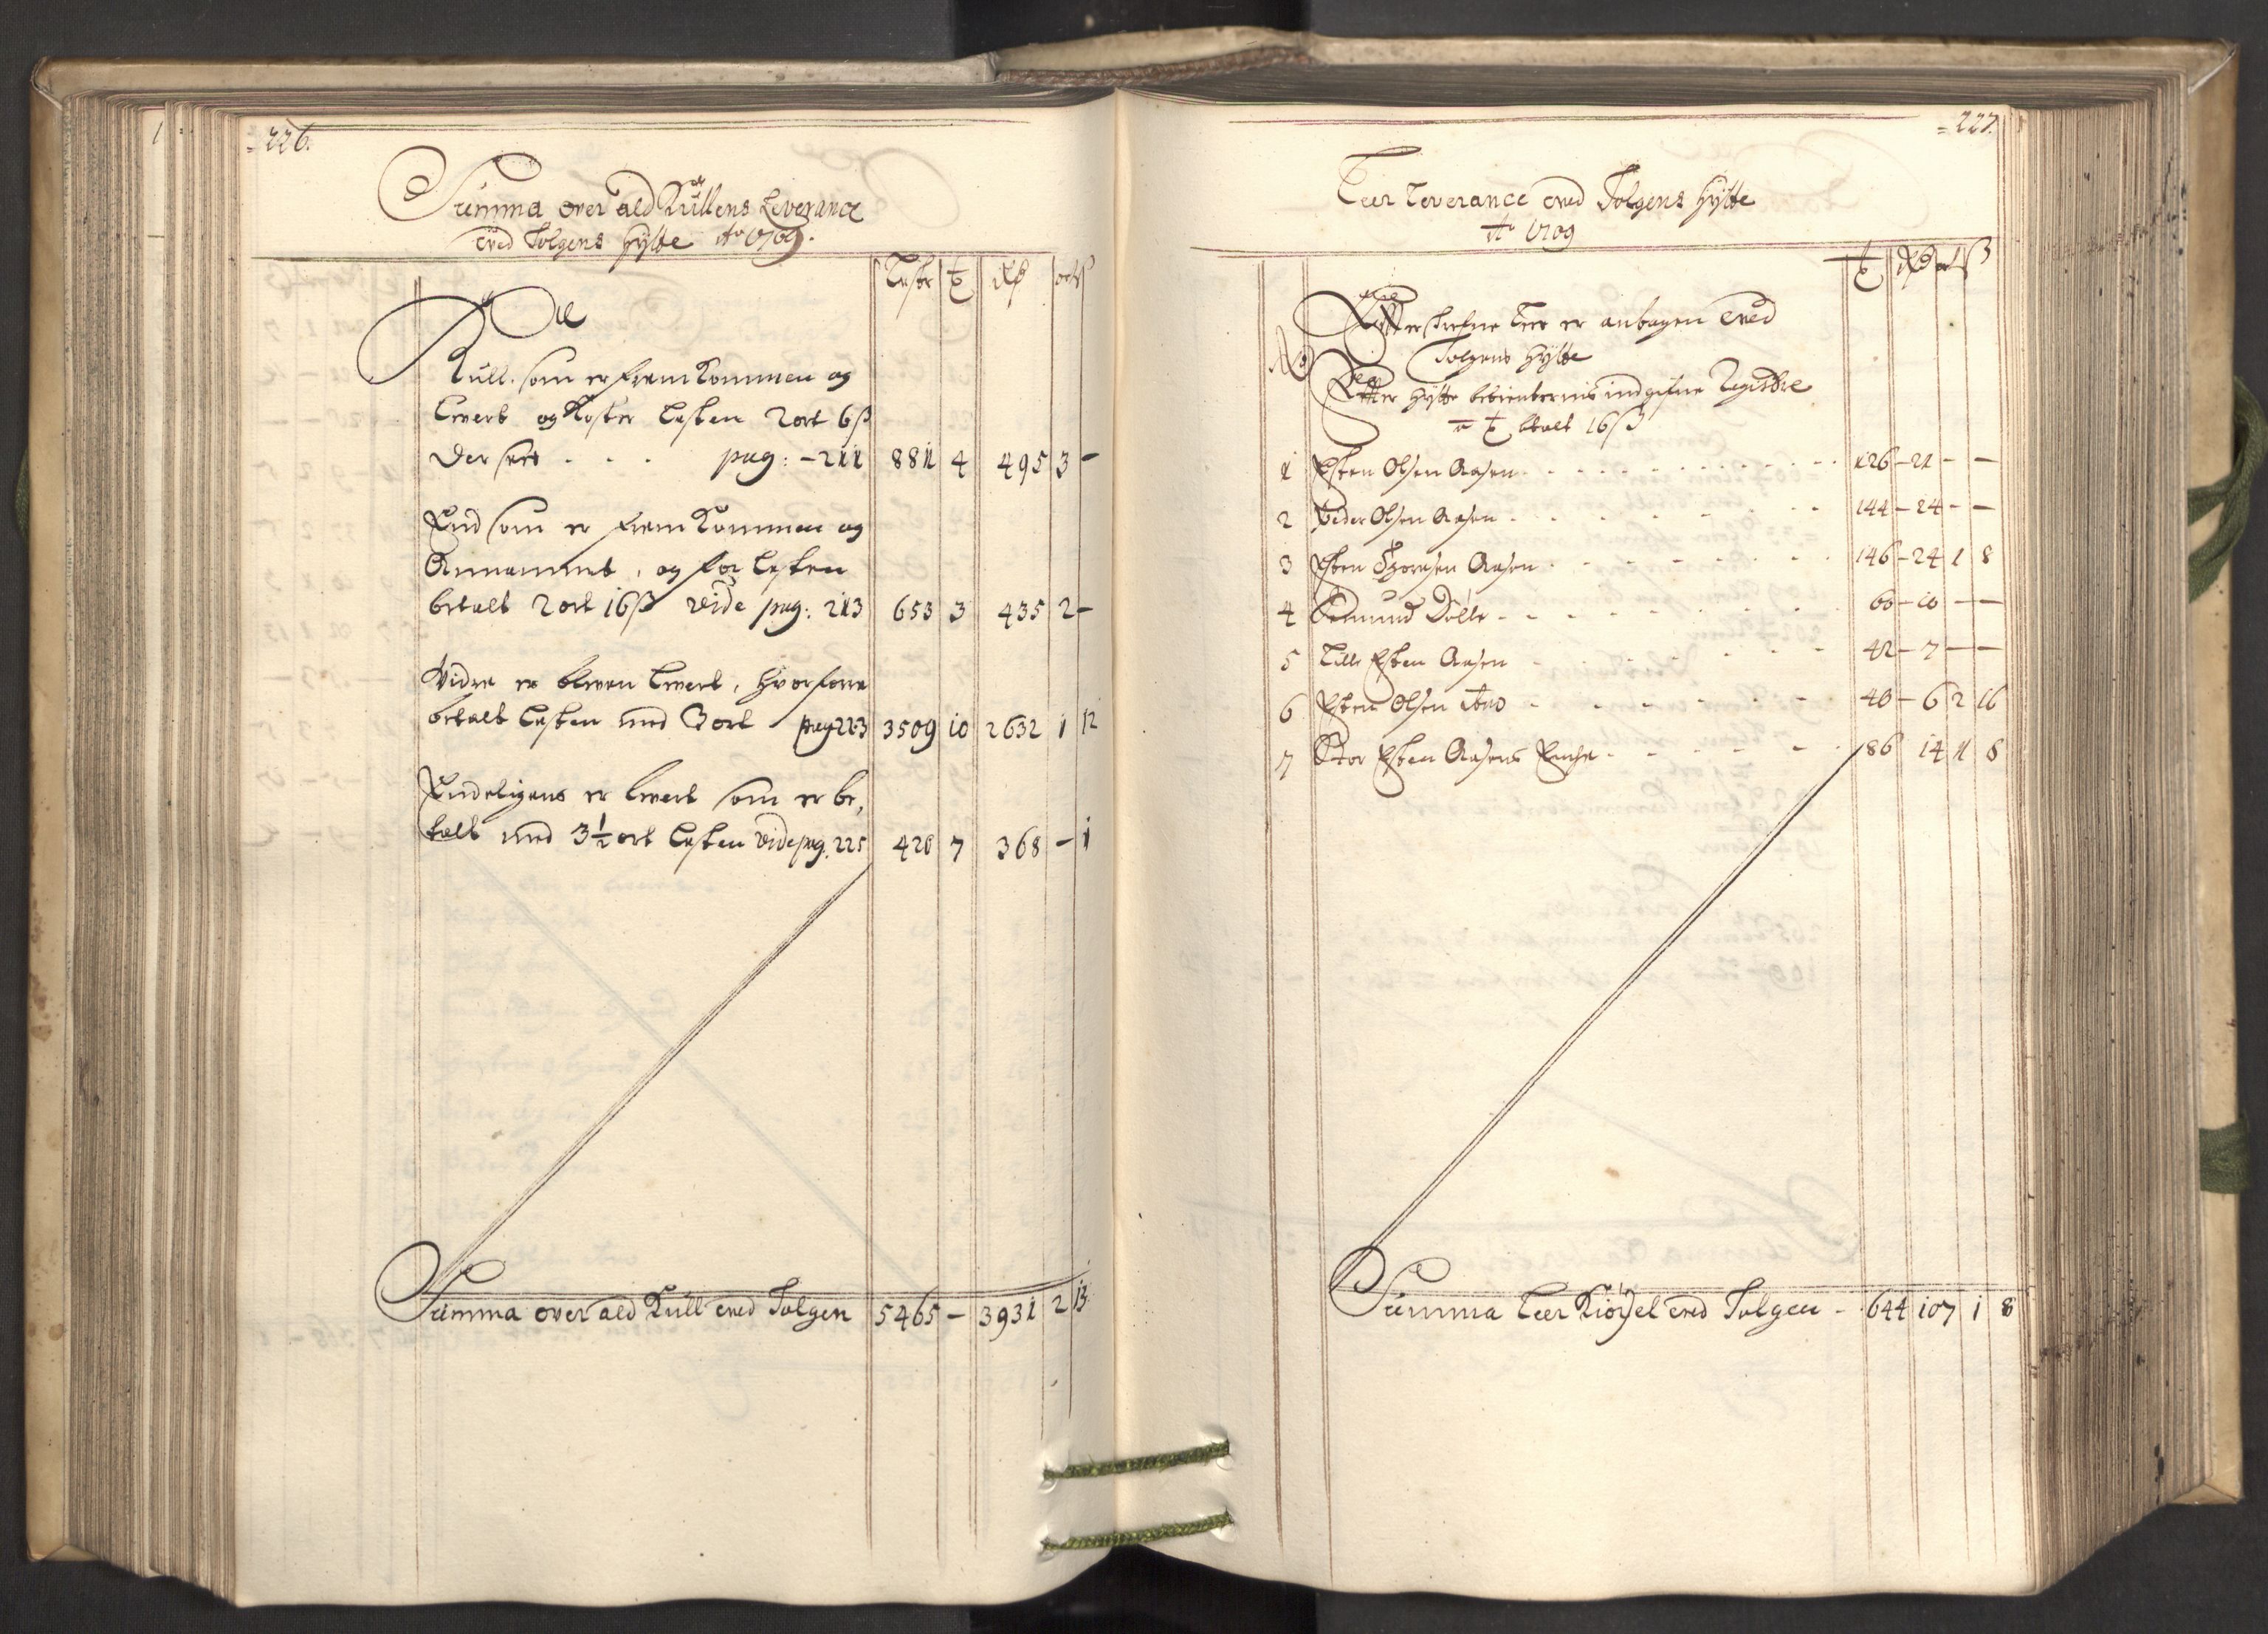 226.
Summa over ald Kullens Leverance
ved Tolgens Hytte Ao 1709.
Lester tr Rdr ort ß
Kull. som er fremkommen og
Lewert og Koster Lesten 2 ort 6 ß
pag: - 211 881 4 495 3 -
End som er frem kommen og
Annammet, og for Lesten
betalt 2 ort 16 ß vide pag: 213 653 3 435 2 -
Vidre er blewen Lewert, hvorforre
betalt Lesten med 3 ort pag 223 3509 10 2632 1 12
Endeligens er Lewert som er be,
talt med 3 1/2 ort Lesten vide pag. 225 420 7 368 - 1
Summa over ald Kull ved Tolgen 5465 - 3931 2 13
227.
Teer Leverance ved Tolgens Hytte
Ao 1709
tr Rdr ort ß
Efterskrefne Teer er antagen ved
No Tolgens Hytte
Efter Hytte betienternis indgifne Registre
a tr betalt 16 ß
1 Esten Olsen Aasen 126 - 21 - -
2 Peder Olsen Aasen 144 - 24 - -
3 Esten Thoresen Aasen 146 - 24 1 8
4 Amund Dølle 60 - 10 - -
5 Lille Esten Aasen 42 - 7 - -
6 Esten Olsen 40 - 6 2 16
7 Stor Esten Aasens Enche 86 14 1 8
Summa Teer Kiørsel ved Tolgen - 644 107 1 8